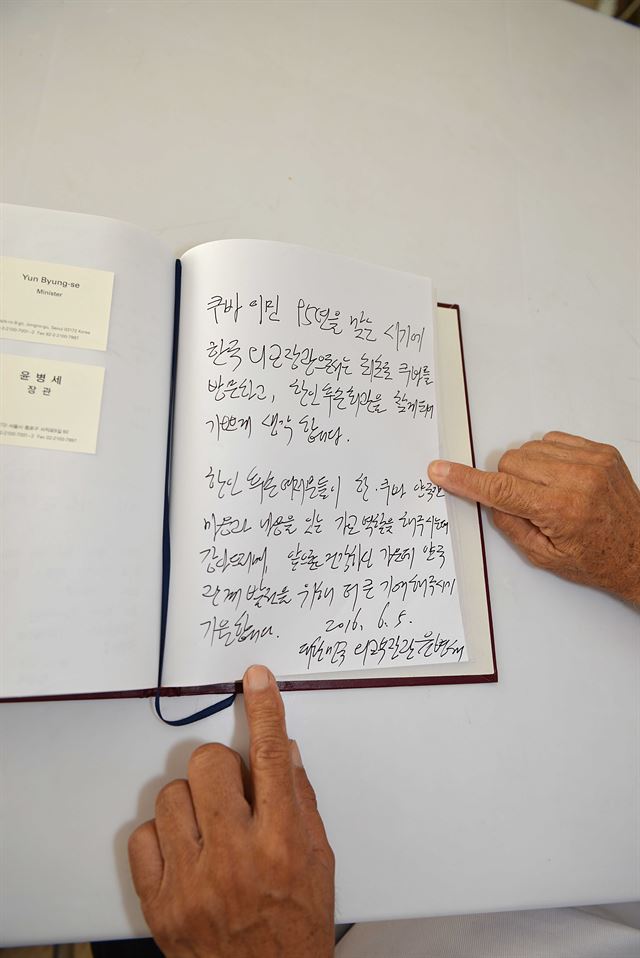 Yun Byung-se
Minister
윤 병 세
장 관
쿠바 이민 95년을 맞는 시기에
한국 외교장관으로서는 최초로 쿠바를
방문하고, 한인후손회관을 함께
기쁘게 생각 합니다.
한인 후손 여러분들이 한·쿠바 양국간
마음과 마음을 잇는 가교 역할을 해주시는데
감사드리며, 앞으로 건강하신 가운데 양국
관계 발전을 위해 더 큰 기여해주시기
기원합니다. 2016. 6. 5.
대한민국 외교부장관 윤병세